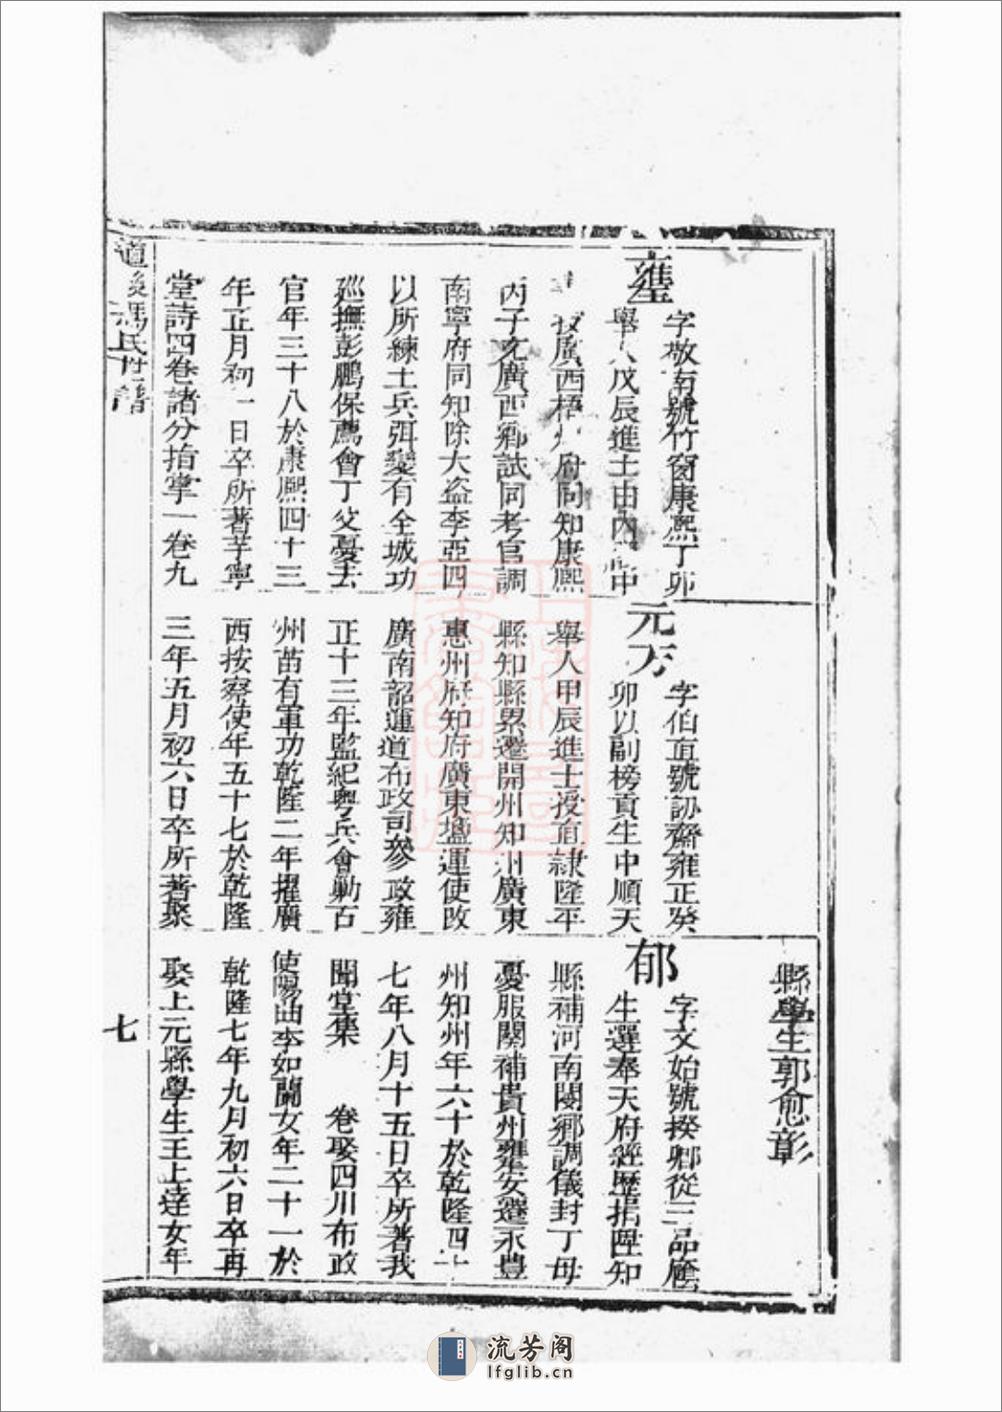 縣學生郭愈彰
字敬南號竹窗康熙丁卯
舉人戊辰進士由內 中
廣西梧 府同知康熙
丙子充廣西鄉試同考官調
南寧府同知除大盜李亞四
以所練土兵弭變有全城功
巡撫彭鵬保薦會丁父憂去
官年三十八於康熙四十三
年正月初一日卒所著芋寧
堂詩四卷諸分指掌一卷九
元方
字伯直號訒齋雍正癸
卯以副榜貢生中順天
舉人甲辰進士授直隸隆平
縣知縣累遷開州知州廣東
惠州府知府廣東鹽運使改
廣南韶連道布政司參政雍
正十三年監紀粵兵會勦古
州苗有軍功乾隆二年擢廣
西按察使年五十七於乾隆
三年五月初六日卒所著聚
郁
字文始號揆卿從三品廕
生選奉天府經歷捐陞知
縣補河南閿鄉調儀封丁母
憂服闋補貴州甕安遷永豐
州知州年六十於乾隆四十
七年八月十五日卒所著我
聞堂集 卷娶四川布政
使陽曲李如蘭女年二十一於
乾隆七年九月初六日卒再
娶上元縣學生王上達女年
道後馮氏世譜
七
流芳阁
lfglib.cn